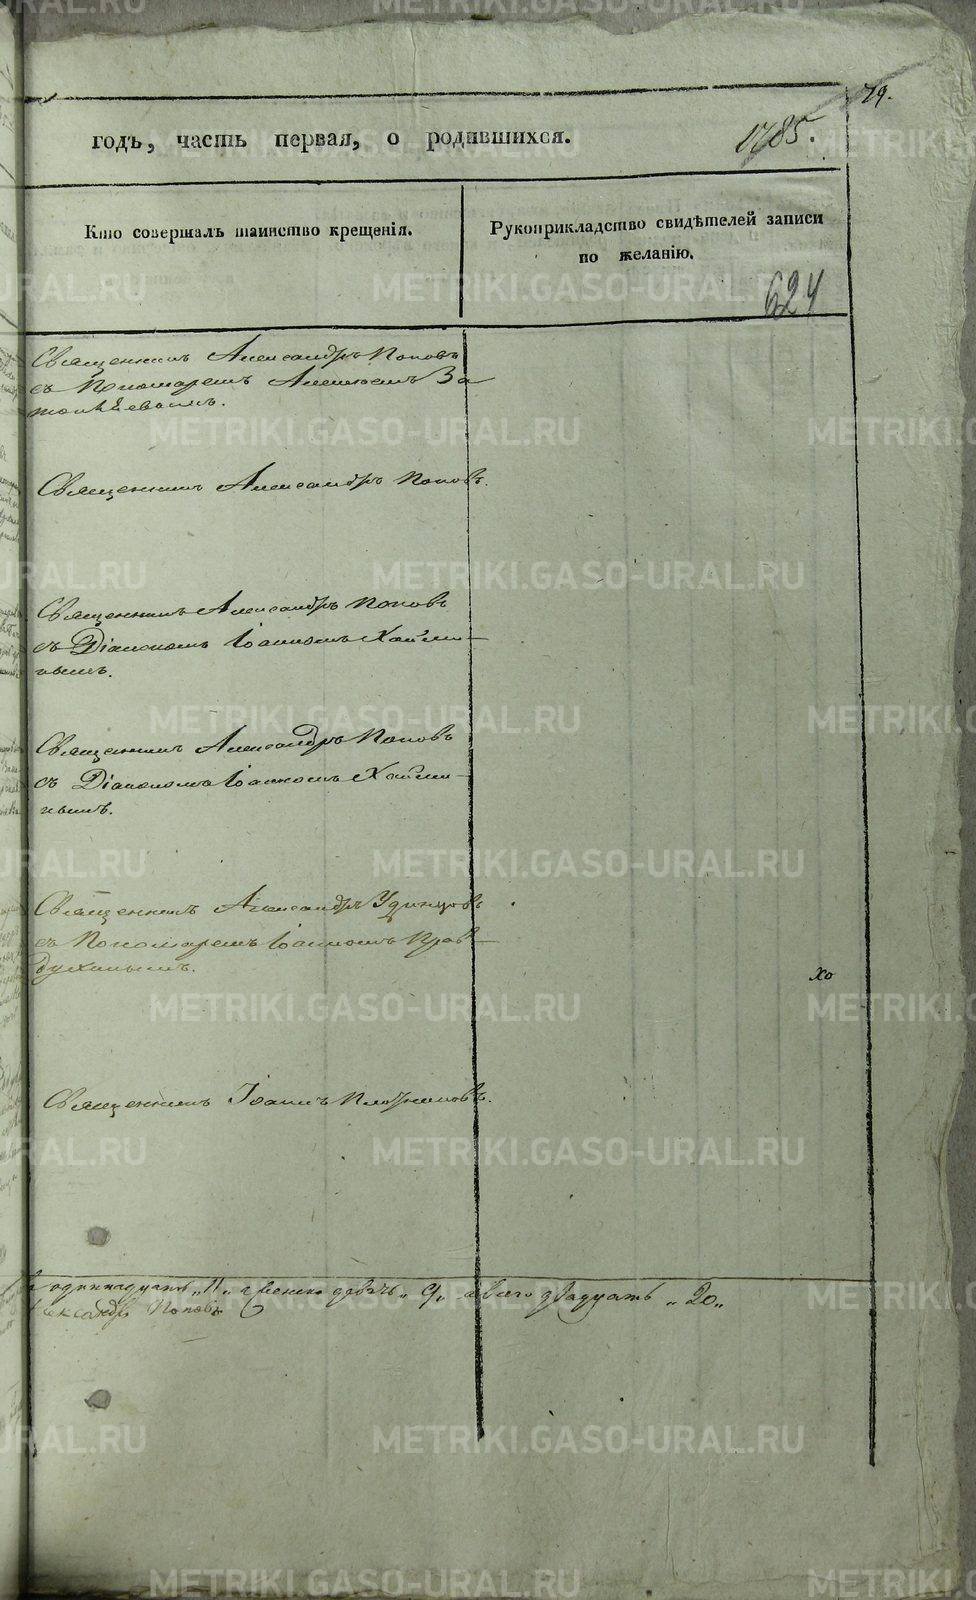 79.
годъ, часть первая, о родившихся.
1785.
Кто совершалъ таинство крещенія.
Рукоприкладство свидѣтелей записи
по желанію.
624
Священникъ Александръ Поповъ
съ Пономаремъ Алексѣемъ За
Священникъ Александръ Поповъ.
Священникъ Александръ Поповъ
съ Діакономъ Іоанномъ
нымъ.
Священникъ Александръ Поповъ
съ Діакономъ Іоанномъ
нымъ.
Священникъ Александръ Удинцовъ
съ Пономаремъ Іоанномъ Прав-
духинымъ.
хо
Священникъ Іоаннъ Плотниковъ.
одиннадцать „11„ женска девять „9„ а всего двадцать „20„
Александръ Поповъ
METRIKI.GASO-URAL.RU